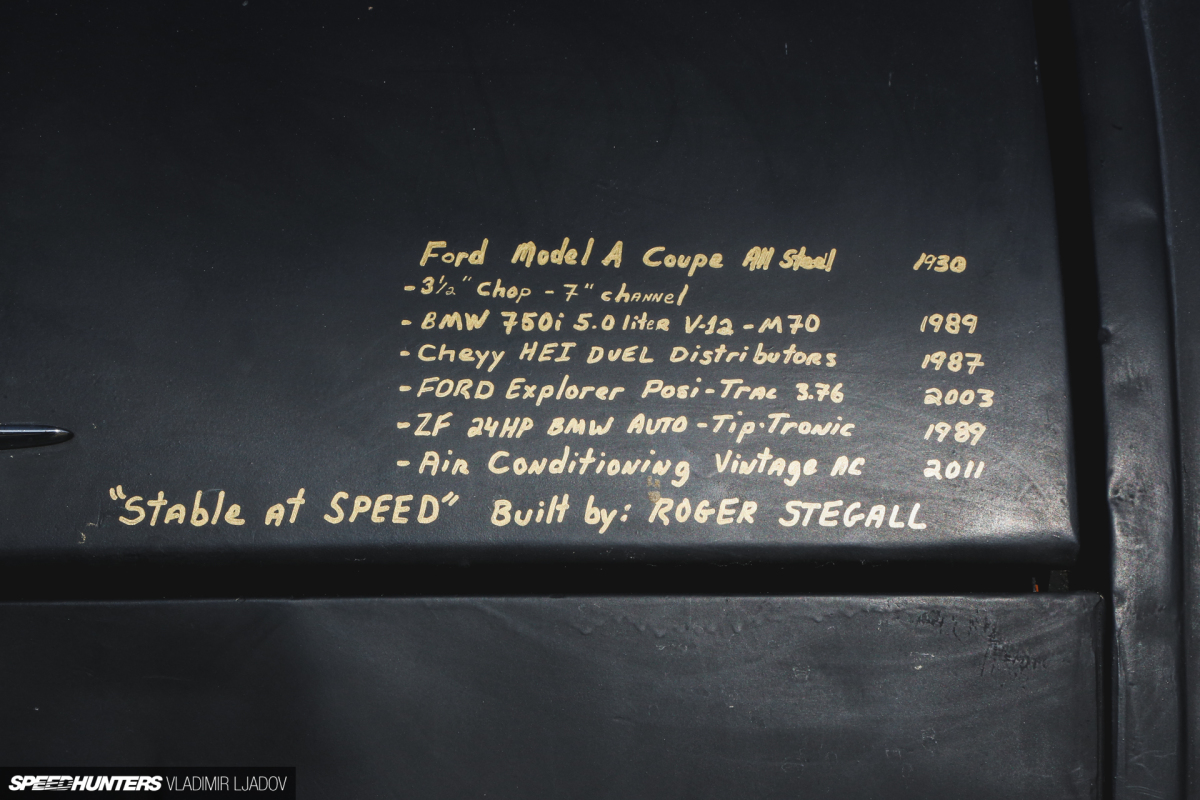 Ford Model A Coupe All Steel 1930
- 3½" Chop - 7" channel
- BMW 750i 5.0 liter V-12 - M70 1989
- Chevy HEI DUEL Distributors 1987
- FORD Explorer Posi-Trac 3.76 2003
- ZF 24HP BMW AUTO - Tip-Tronic 1989
- Air Conditioning Vintage AC 2011
"Stable at SPEED" Built by: ROGER STEGALL
SPEEDHUNTERS VLADIMIR LJADOV